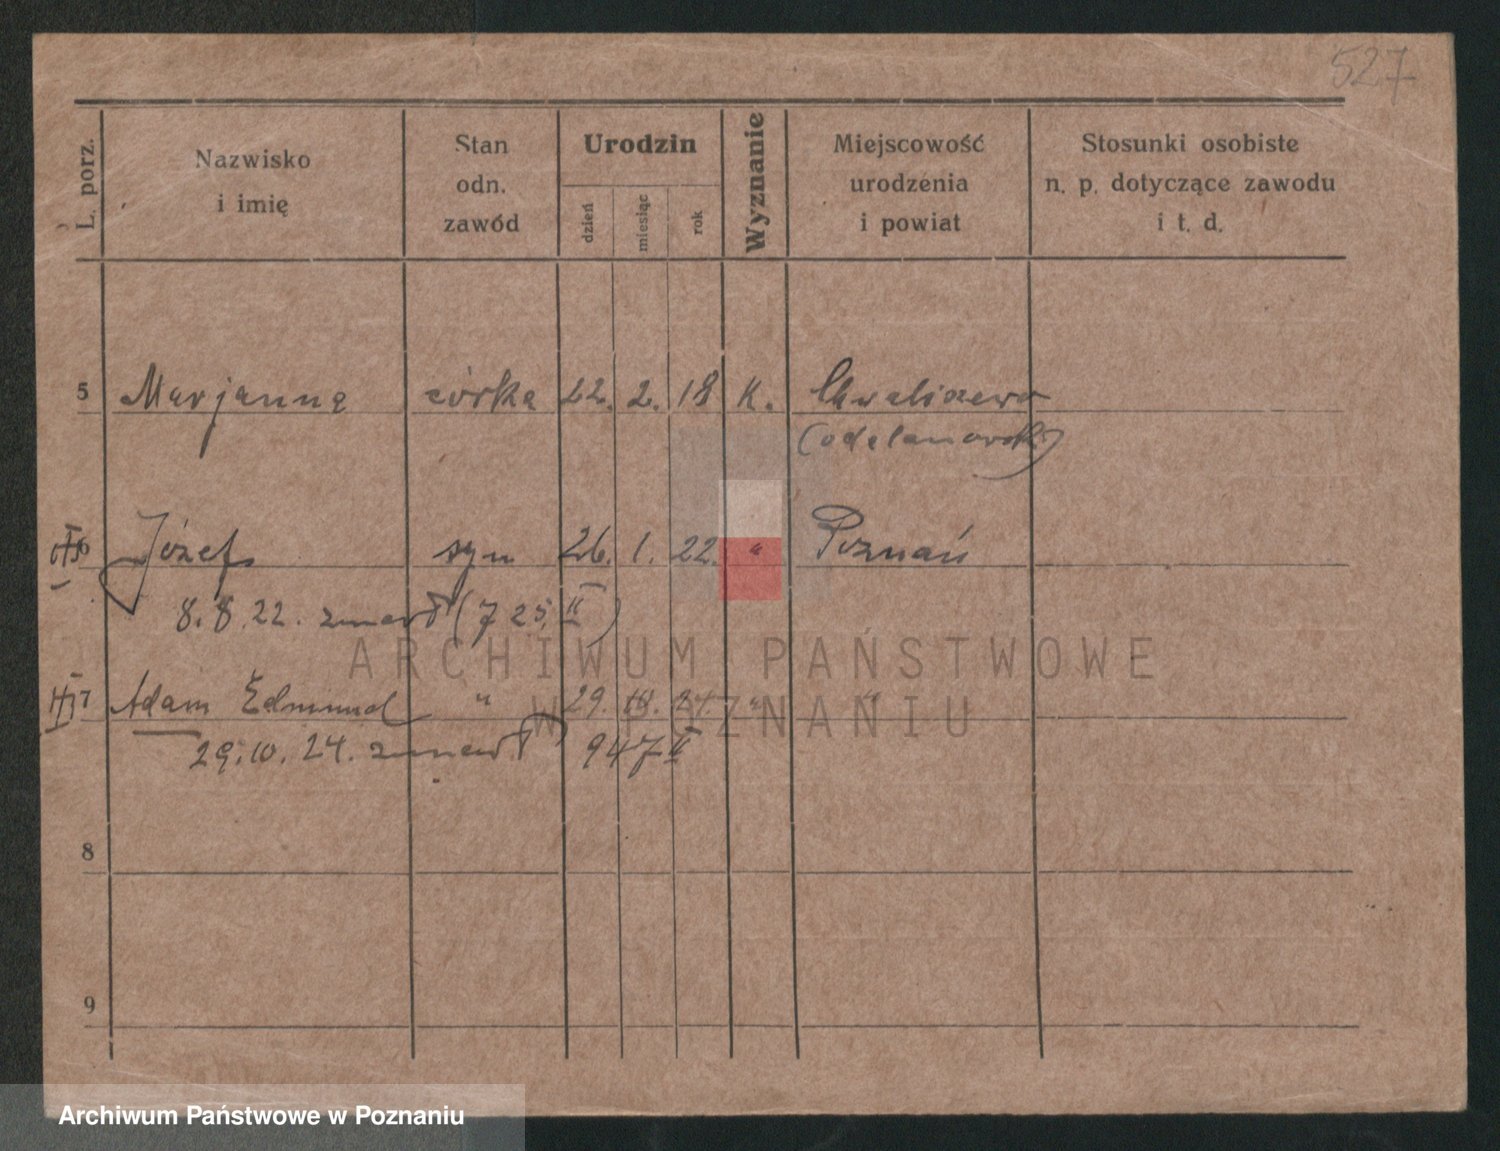 527
L. porz.
Nazwisko
i imię
Stan
odn.
zawód
Urodzin
dzień
miesiąc
rok
Wyznanie
Miejscowość
urodzenia
i powiat
Stosunki osobiste
n. p. dotyczące zawodu
i t. d.
5 Marjanna córka 22. 2. 18 K. Chwaliszewo
(odolanowski)
6 Józef syn 26. 1. 22. " Poznań
8. 8. 22. zmarł (725, II)
7 Adam Edmund " 29. 24. " "
29. 10. 24. zmarł 947 II
8
9
ARCHIWUM PAŃSTWOWE
W POZNANIU
Archiwum Państwowe w Poznaniu